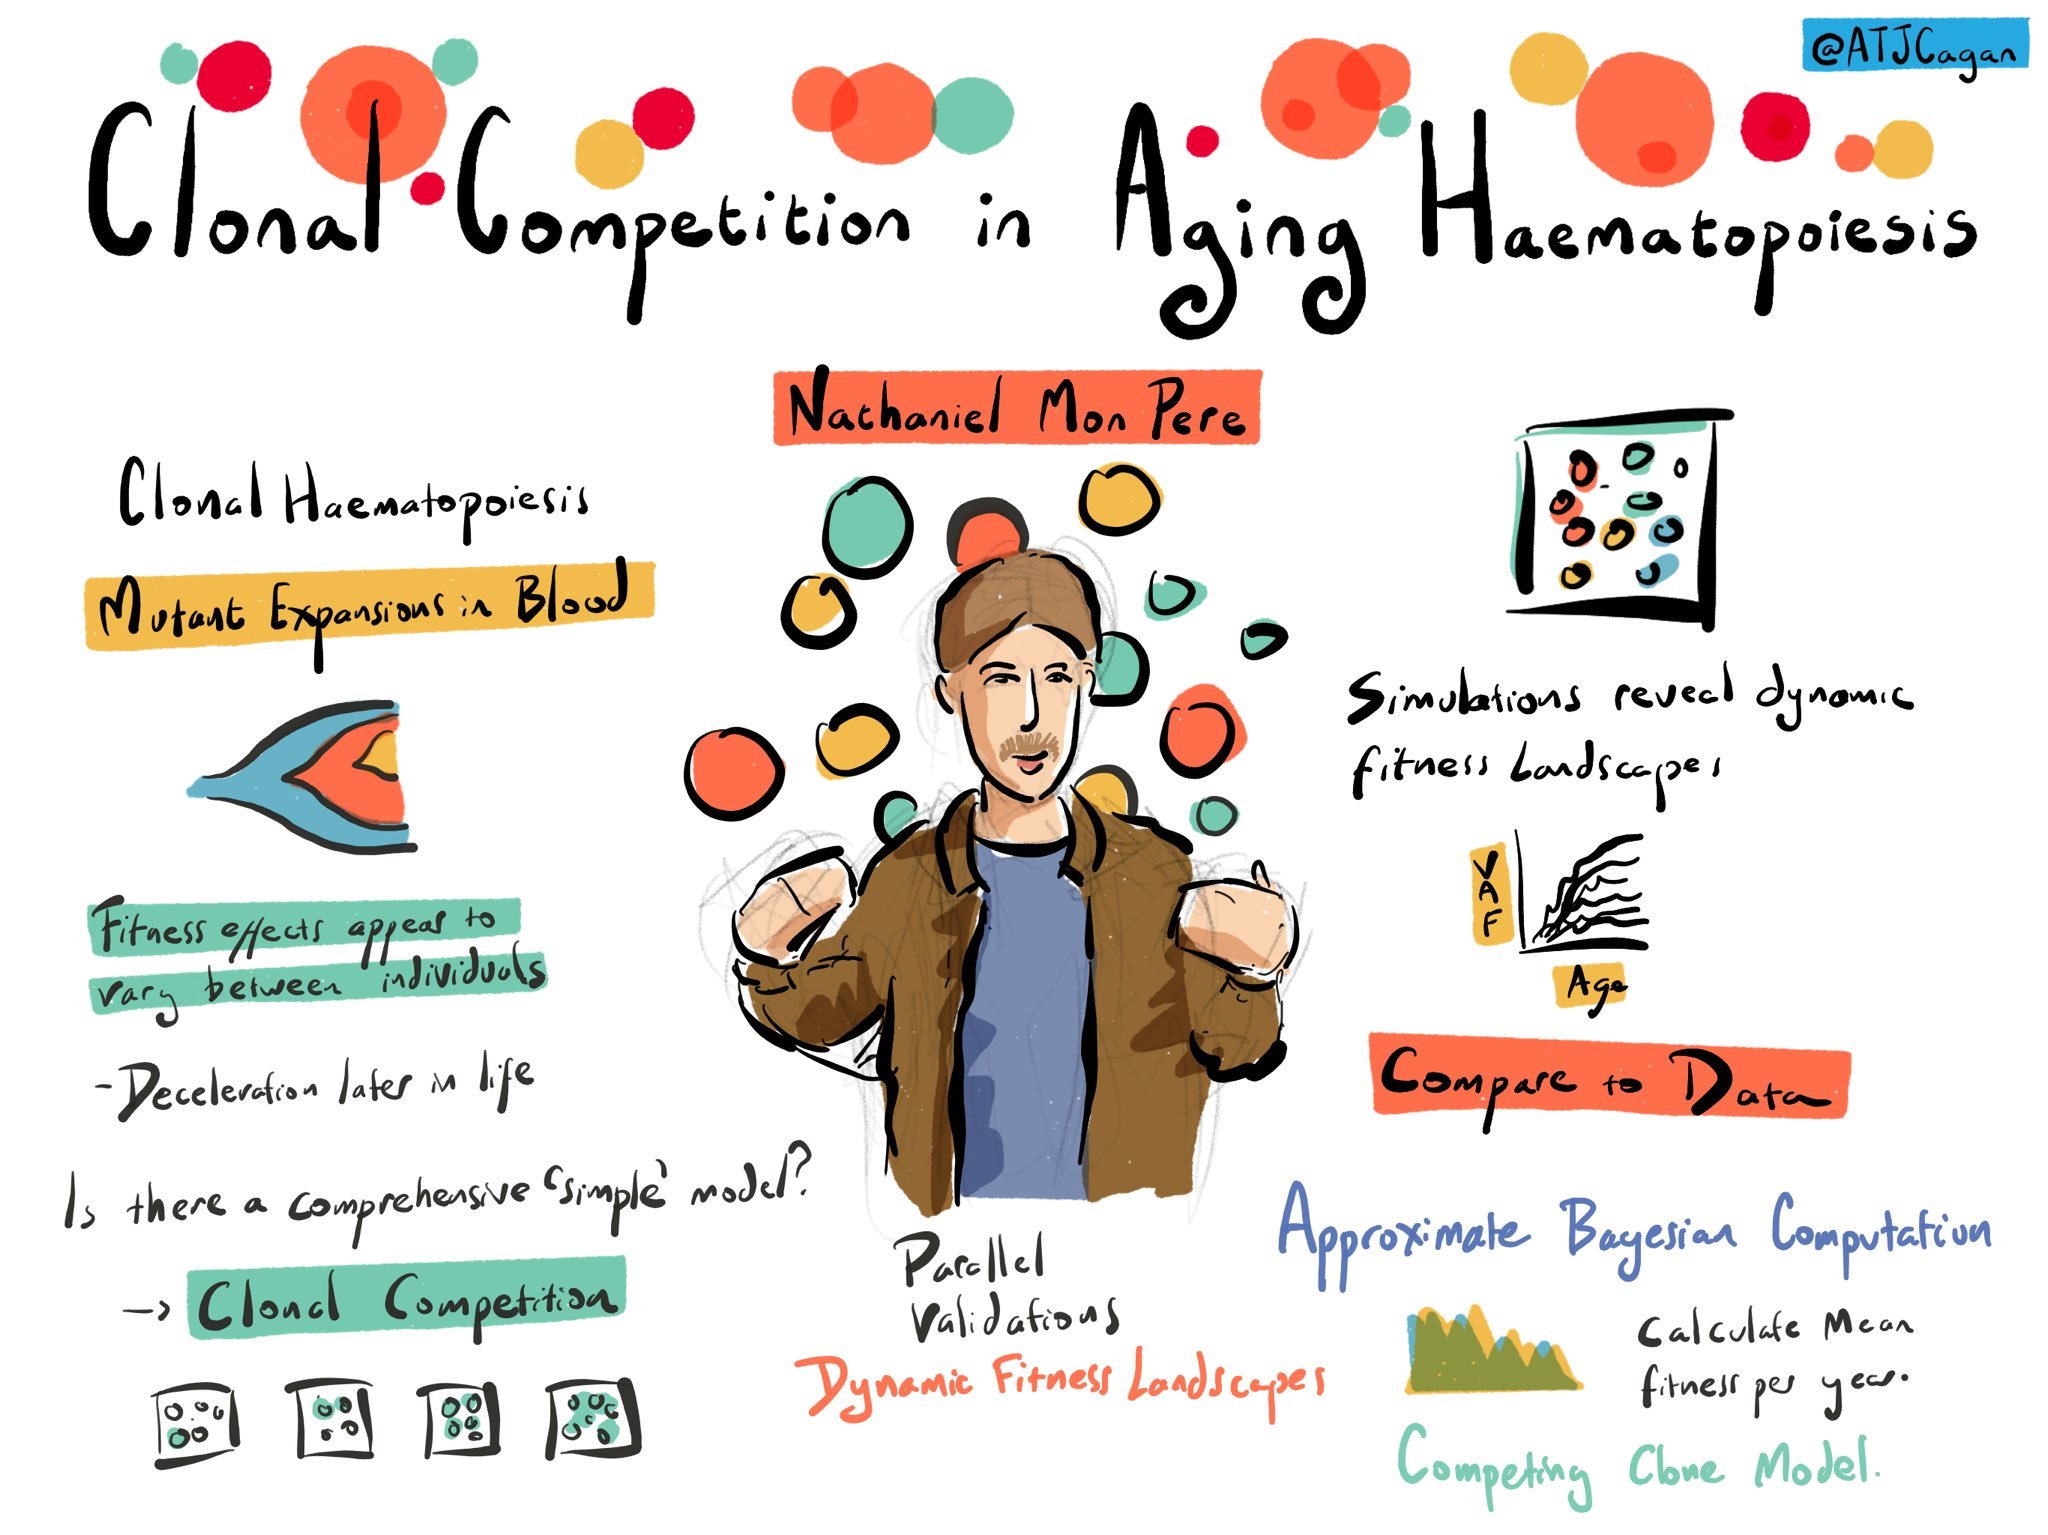 @ATJCagan
Clonal Competition in Aging Haematopoiesis
Nathaniel Mon Pere
Clonal Haematopoiesis
Mutant Expansions in Blood
Fitness effects appear to
vary between individuals
- Deceleration later in life
Is there a comprehensive 'simple' model?
→ Clonal Competition
Parallel
Validations
Dynamic Fitness Landscapes
Simulations reveal dynamic
fitness landscapes
VAF
Age
Compare to Data
Approximate Bayesian Computation
Calculate Mean
fitness per year.
Competing Clone Model.